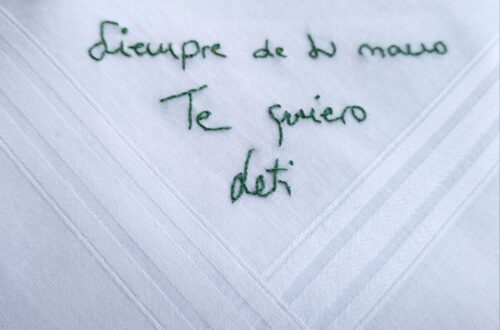 Siempre de tu mano
Te quiero
Leti